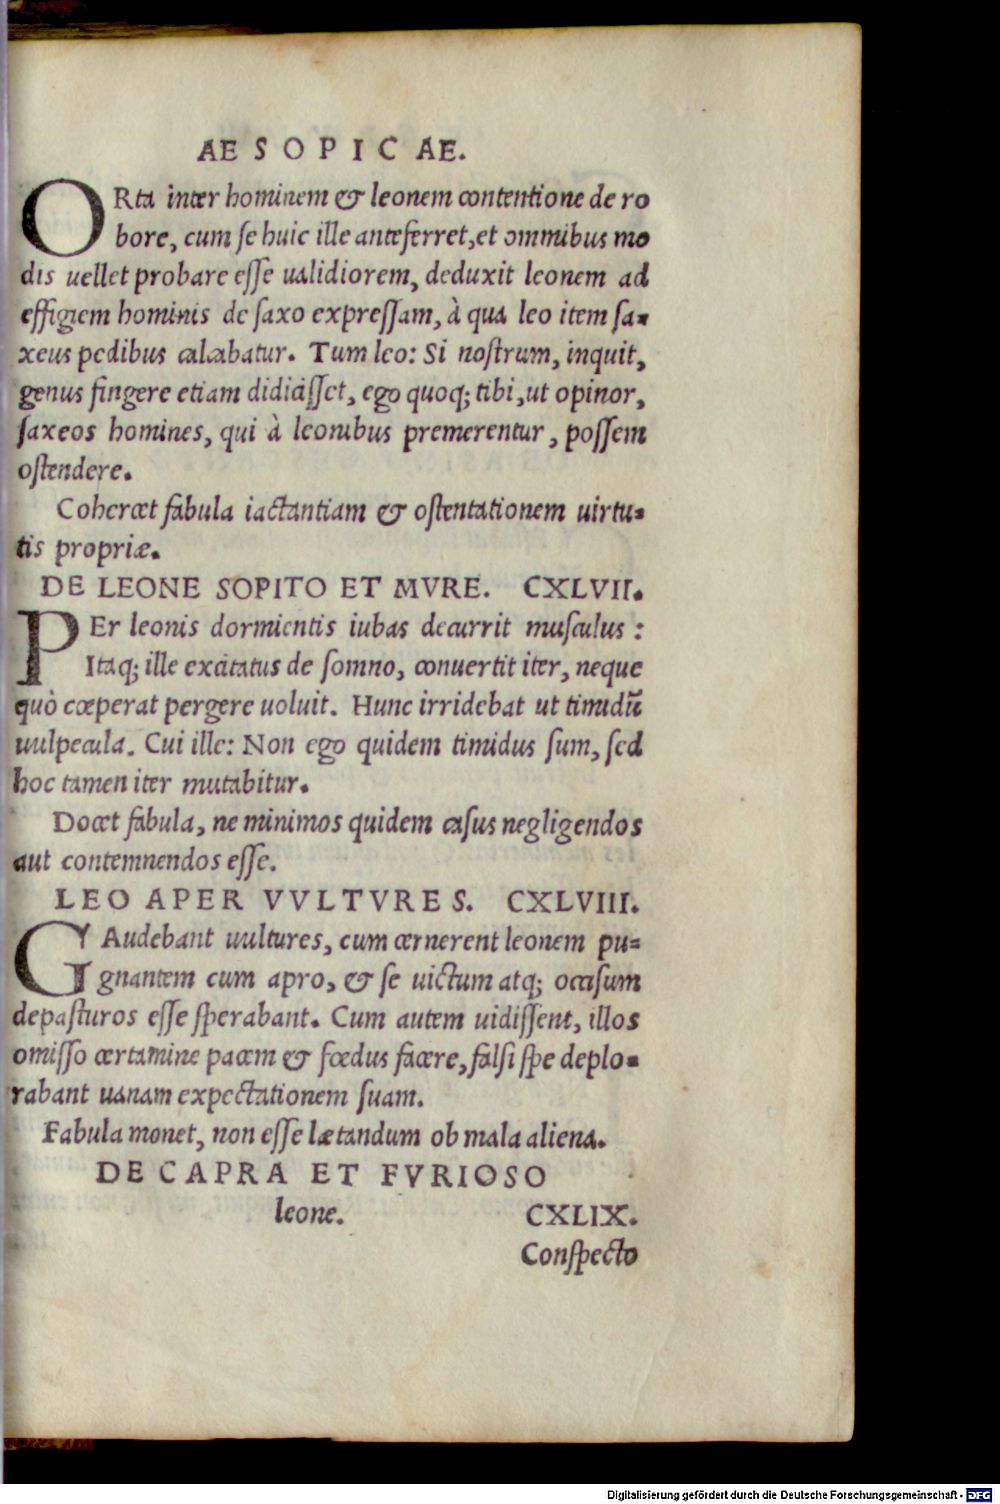 AESOPICAE.
ORta inter hominem & leonem contentione de ro
bore, cum se huic ille anteferret, et omnibus mo
dis uellet probare esse ualidiorem, deduxit leonem ad
effigiem hominis de saxo expressam, à qua leo item sa-
xeus pedibus calcabatur. Tum leo: Si nostrum, inquit,
genus fingere etiam didicisset, ego quoq; tibi, ut opinor,
saxeos homines, qui à leonibus premerentur, possem
ostendere.
Cohercet fabula iactantiam & ostentationem uirtu-
tis propriæ.
DE LEONE SOPITO ET MVRE. CXLVII.
PEr leonis dormientis iubas decurrit musculus:
Itaq; ille excitatus de somno, conuertit iter, neque
quò cœperat pergere uoluit. Hunc irridebat ut timidũ
uulpecula. Cui ille: Non ego quidem timidus sum, sed
hoc tamen iter mutabitur.
Docet fabula, ne minimos quidem casus negligendos
aut contemnendos esse.
LEO APER VVLTVRES. CXLVIII.
GAudebant uultures, cum cernerent leonem pu-
gnantem cum apro, & se uictum atq; occisum
depasturos esse sperabant. Cum autem uidissent, illos
omisso certamine pacem & fœdus facere, falsi spe deplo-
rabant uanam expectationem suam.
Fabula monet, non esse lætandum ob mala aliena.
DE CAPRA ET FVRIOSO
leone. CXLIX.
Conspecto
Digitalisierung gefördert durch die Deutsche Forschungsgemeinschaft - DFG